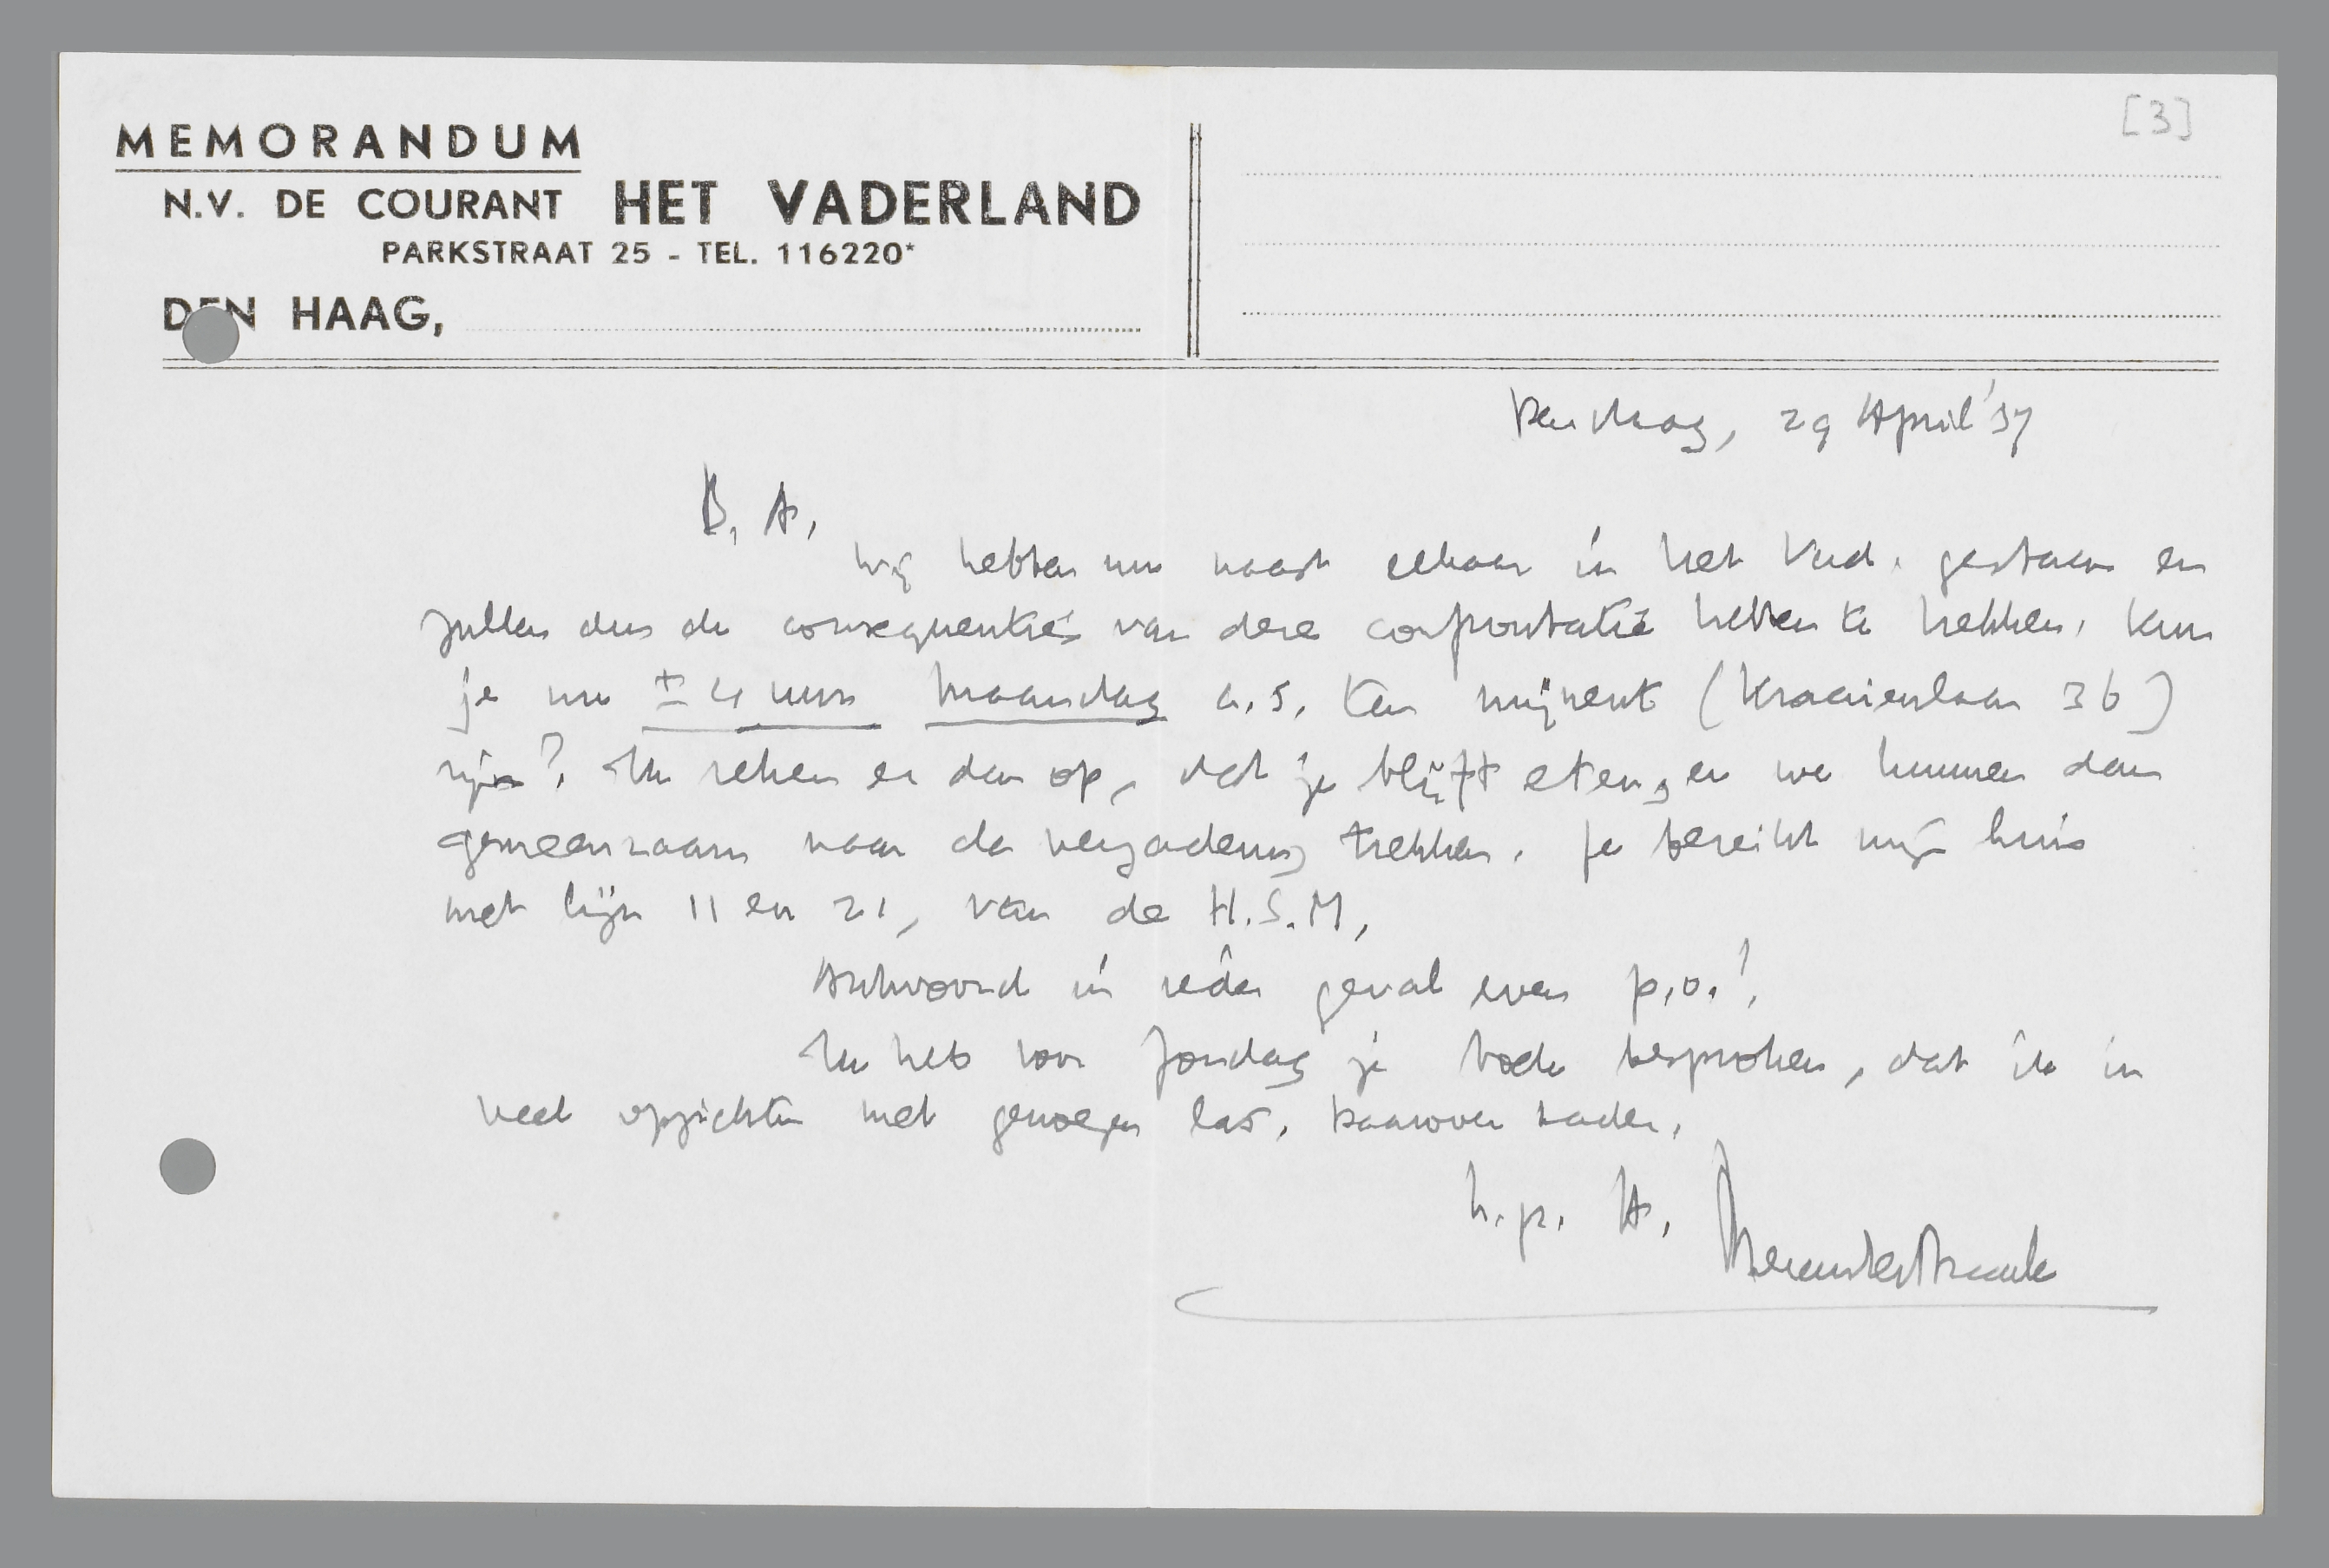 [3]
MEMORANDUM
N.V. DE COURANT HET VADERLAND
PARKSTRAAT 25 - TEL. 116220*
DEN HAAG,
Den Haag, 29 April '37
B. A.
Wij hebben nu naast elkaar in het Vad. gestaan en
zullen dus de consequenties van deze confrontatie hebben te trekken. Kun
je nu ± 4 uur Maandag a.s. ten mijnent (Kraaienlaan 36)
zijn? Ik reken er dan op, dat je blijft eten, en we kunnen dan
gemeenzaam naar de vergadering trekken. Je bereikt mijn huis
met lijn 11 en 21, van de H.S.M.
Antwoord in ieder geval even p.o.!
Ik heb voor Zondag je boek besproken, dat ik in
veel opzichten met genoegen las. Daarover nader.
h.gr. 
Menno ter Braak